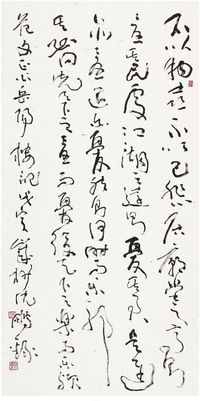 不以物喜不以己悲居廟堂之高則
憂其民處江湖之遠則憂其君是進
亦憂退亦憂然則何時而樂耶
其必曰先天下之憂而憂後天下之樂而樂歟
范文正公岳陽樓記戊寅